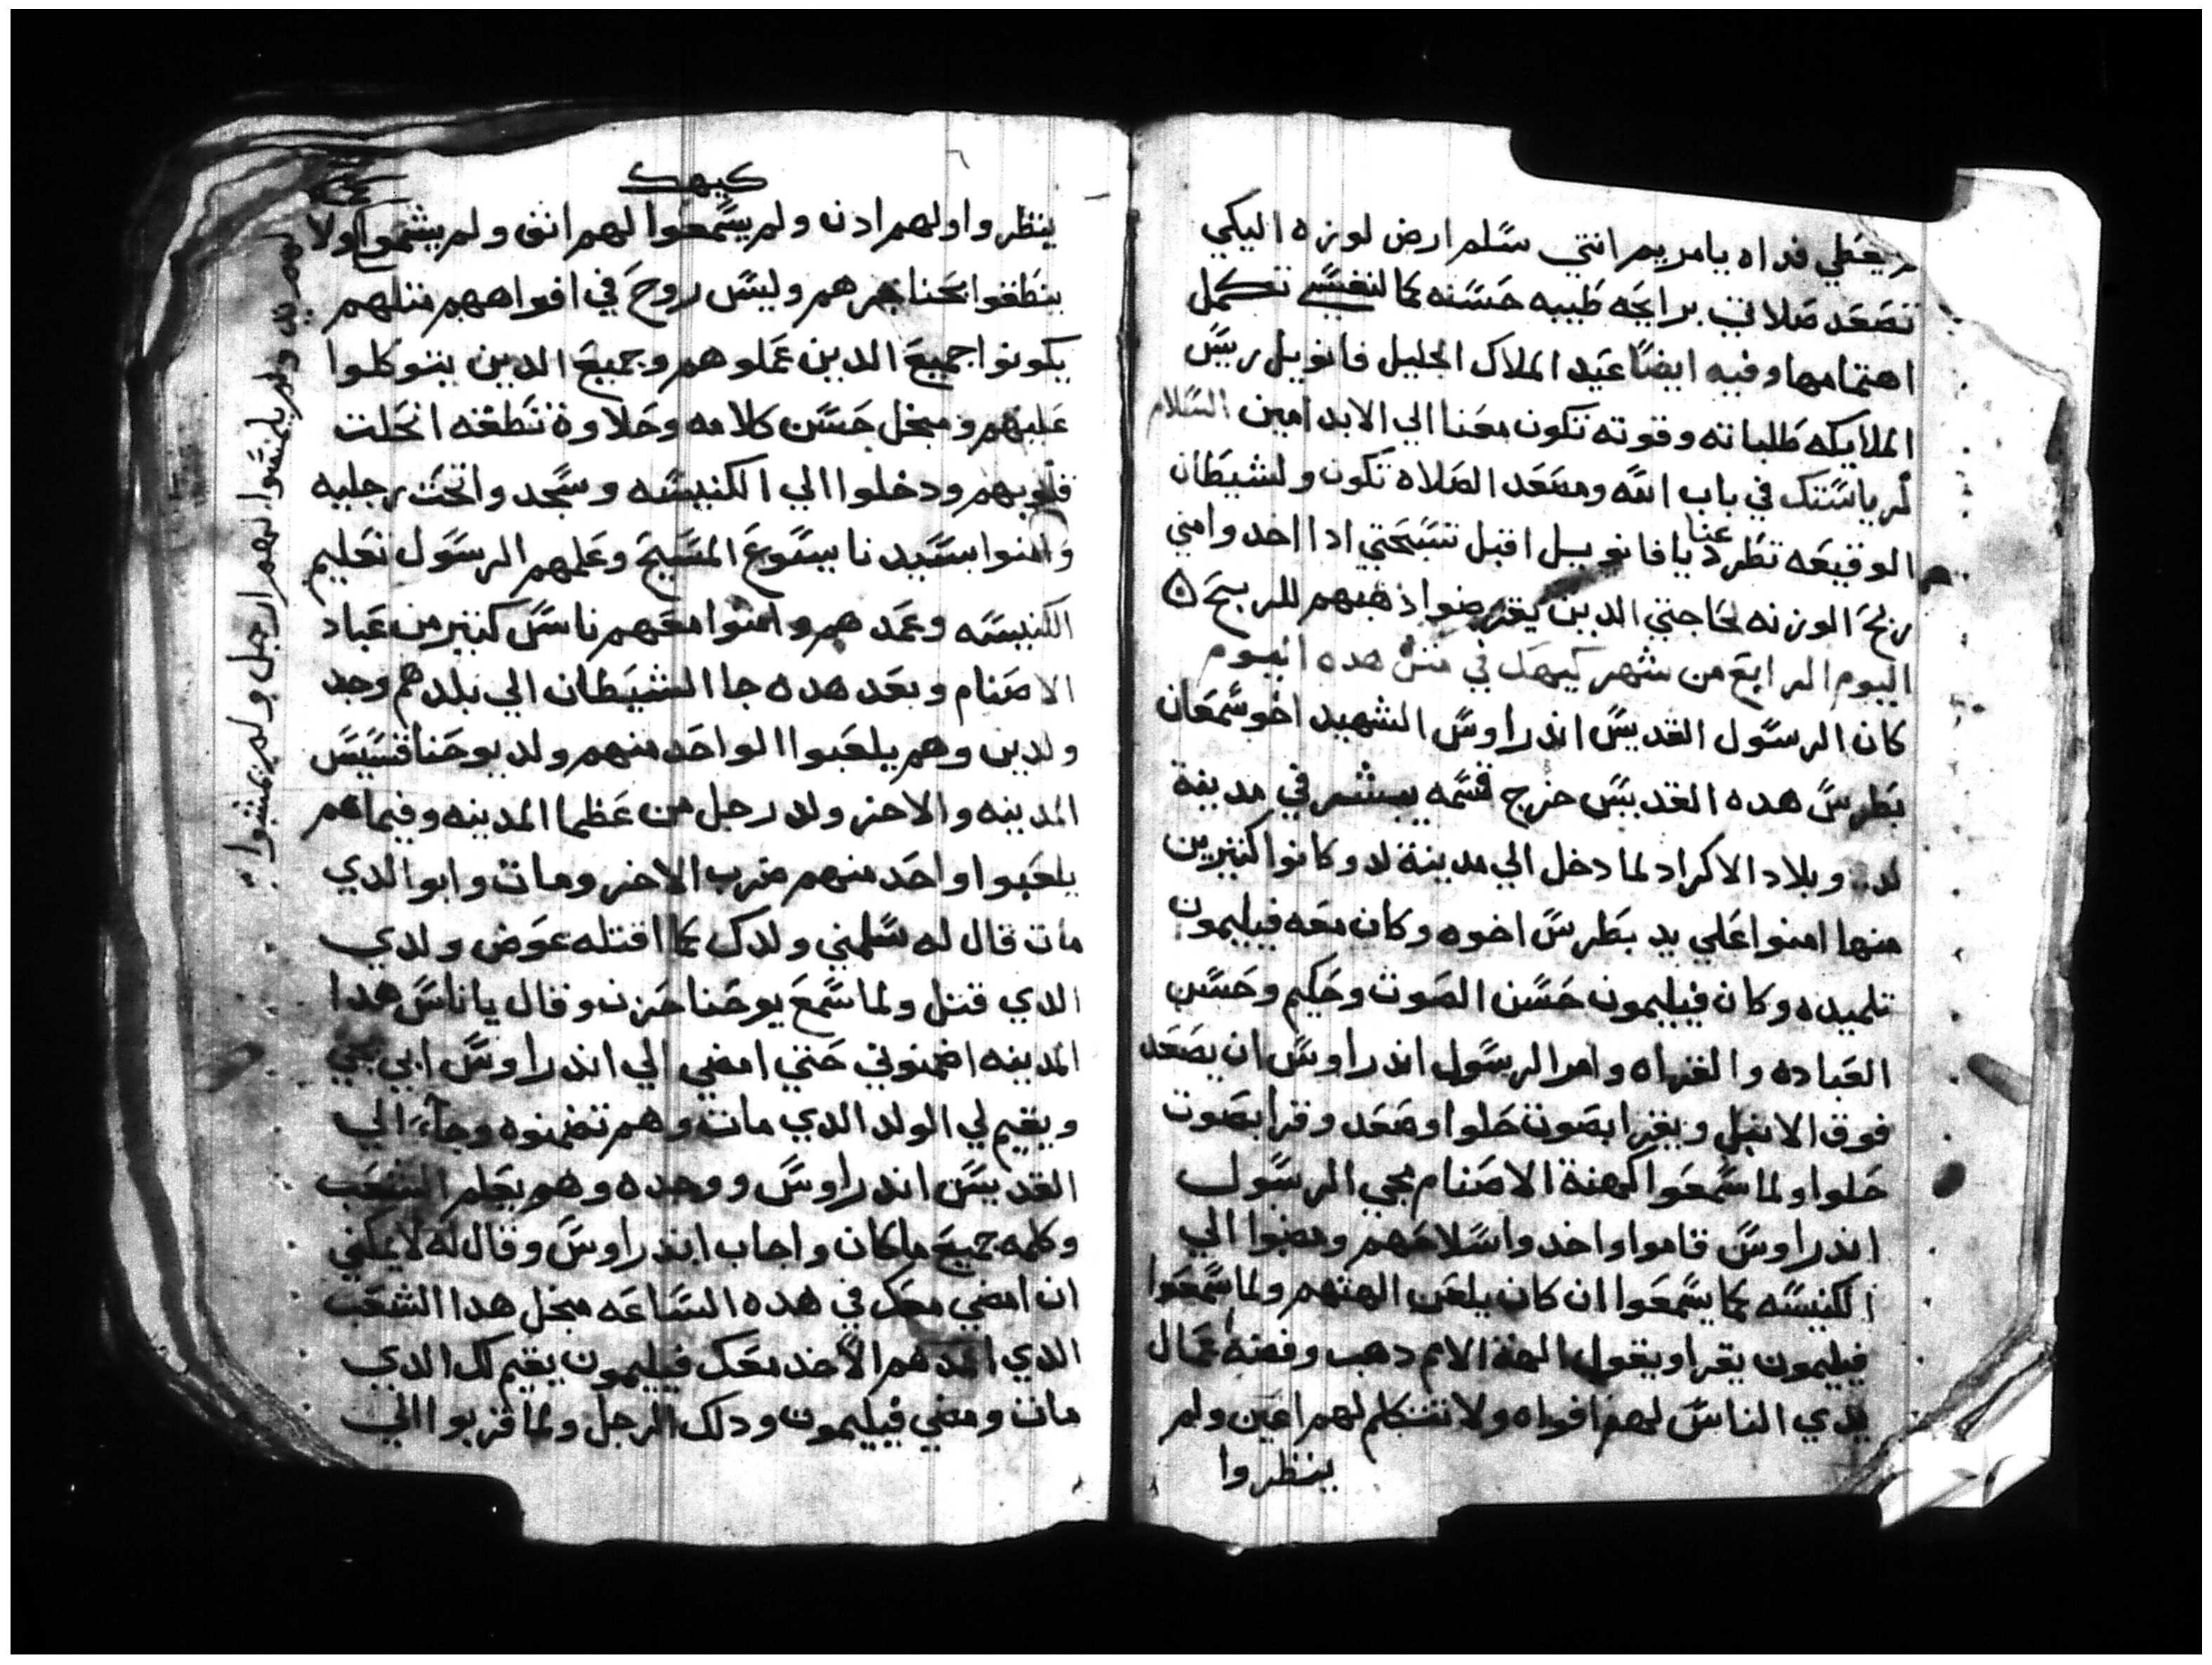 يعطي فداه يامريم انتي سلم ارض لوزه اليكي
تصعد صلاتي برايحه طيبه حسنه كما لنفسي تكمل
اهتمامها وفيه ايضا عيد الملاك الجليل فانويل ريس
الملايكه طلباته وقوته تكون معنا الي الابد امين السلام
لرياستك في باب الله ومصعد الصلاه تكون ولشيطان
الوقيعه تطرد عنا يافانويل اقبل تسبحتي ادا اخد وامني
ربح الوزنه لحاجتي الدين يقرضوا ذهبهم للربح ۵
اليوم الرابع من شهر كيهك في متل هده اليوم
كان الرسول القديس اندراوس الشهيد اخو سمعان
بطرس هده القديس خرج قسمه يبشر في مدينة
لد وبلاد الاكراد لما دخل الي مدينة لد وكانوا كتيرين
منها امنوا علي يد بطرس اخوه وكان معه فيليمون
تلميده وكان فيليمون حسن الصوت وحكيم وحسن
العباده والقراه وامر الرسول اندراوس ان يصعد
فوق الانبل ويقرا بصوت حلوا وصعد وقرا بصوت
حلوا ولما سمعوا كهنة الاصنام بجي الرسول
اندراوس قاموا واخدوا سلاحهم ومضوا الي
الكنيسه كما يسمعوا ان كان يلعن الهتهم ولما سمعوا
فيليمون يقرا ويقول الهة الامم دهب وفضة عمال
يدي الناس لهم افواه ولا تتكلم لهم اعين ولم
ينظروا
كيهك
ينظروا ولهم ادن ولم يسمعوا لهم انف ولم يشموا ولا
لهم يد ولم يلمسوا لهم ارجل ولم يمشوا
ينطقوا بحناجرهم وليس روح في افواههم متلهم
يكونوا جميع الدين عملوهم وجميع الدين يتوكلوا
عليهم ومجل حسن كلامه وحلاوة نطقه انحلت
قلوبهم ودخلوا الي الكنيسه وسجدوا تحت رجليه
وامنوا بسيدنا يسوع المسيح وعلمهم الرسول تعليم
الكنيسه وعمدهم وامنوا معهم ناس كتير من عباد
الاصنام وبعد هده جا الشيطان الي بلدهم وجد
ولدين وهم يلعبوا الواحد منهم ولد يوحنا قسيس
المدينه والاخر ولد رجل من عظما المدينه وفيما هم
يلعبوا واحد منهم ضرب الاخر ومات وابوا الدي
مات قال له سلمني ولدك كما اقتله عوض ولدي
الدي قتل ولما سمع يوحنا حزن وقال يا ناس هدا
المدينه اضمنوني حتي امضي الي اندراوس ابي يجي
ويقيم لي الولد الدي مات وهم تضمنوه وجاء الي
القديس اندراوس ووجده وهو يعلم الشعب
وكلمه جميع ماكان واجاب اندراوس وقال له لا يمكني
ان امضي معك في هده الساعه مجل هدا الشعب
الدي اعمدهم الا خد معك فيليمون يقيم لك الدي
مات ومضي فيليمون ودلك الرجل ولما قربوا الي